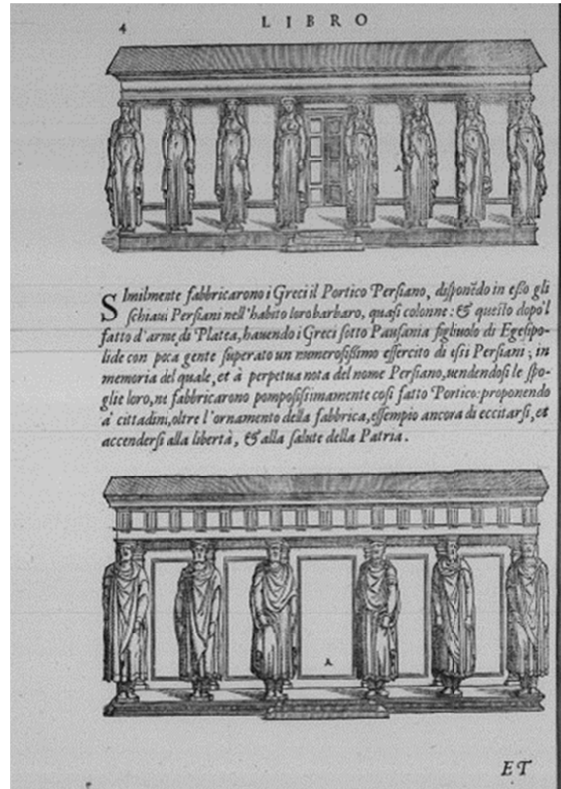 4 LIBRO
A
SImilmente fabbricarono i Greci il Portico Persiano, disponēdo in eßo gli
schiaui Persiani nell'habito loro barbaro, quasi colonne: & questo dopo'l
fatto d'arme di Platea, hauendo i Greci sotto Pausania figliuolo di Egesipo-
lide con poca gente superato un numerosissimo essercito di essi Persiani; in
memoria del quale, et à perpetua nota del nome Persiano, uendendosi le spo-
glie loro, ne fabbricarono pomposissimamente cosi fatto Portico: proponendo
a' cittadini, oltre l'ornamento della fabbrica, essempio ancora di eccitarsi, et
accendersi alla libertà, & alla salute della Patria.
A
ET